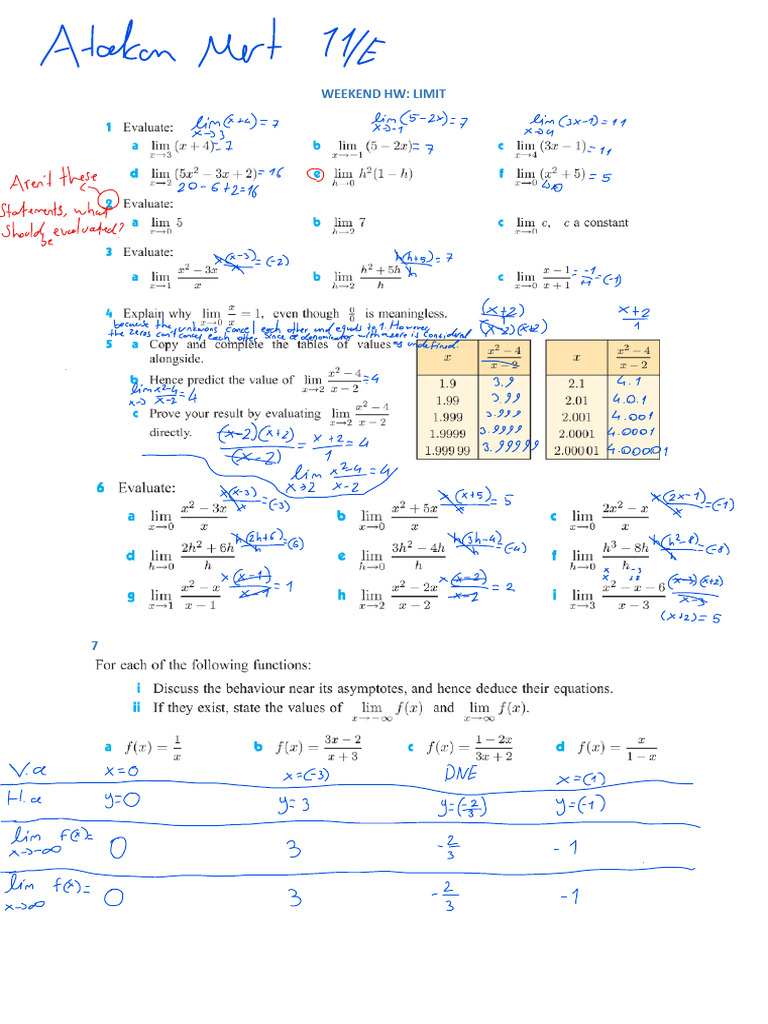 Atakan Mert 11/E
WEEKEND HW: LIMIT
1 Evaluate: lim x→3 (x+4) = 7 lim x→-1 (5-2x) = 7 lim x→4 (3x-1) = 11
a lim x→3 (x + 4) = 7 b lim x→−1 (5 − 2x) = 7 c lim x→4 (3x − 1) = 11
d lim x→2 (5x² − 3x + 2) = 16 e lim h→0 h²(1 − h) f lim x→0 (x² + 5) = 5
20-6+2=16
Aren't these
Statements, what
Should be evaluated?
2 Evaluate:
a lim x→0 5 b lim h→2 7 c lim x→0 c, c a constant
3 Evaluate:
a lim x→1 (x² − 3x)/x x(x-3)/x = (-2) b lim h→2 (h² + 5h)/h h(h+5)/h = 7 c lim x→0 (x − 1)/(x + 1) = -1/+1 = (-1)
4 Explain why lim x→0 x/x = 1, even though 0/0 is meaningless.
because the unknowns cancel each other and equals to 1. However
the zeros can't cancel each other since a denominator with a zero is considered
as undefined.
(x+2)(x-2)/(x+2) x+2/1
5 a Copy and complete the tables of values
alongside.
b Hence predict the value of lim x→2 (x² − 4)/(x − 2) = 4
lim x→2 x²-4/x-2 = 4
c Prove your result by evaluating lim x→2 (x² − 4)/(x − 2)
directly.
(x-2)(x+2)/(x-2) = x+2/1 = 4
lim x→2 x²-4/x-2 = 4
x (x² − 4)/(x − 2) x (x² − 4)/(x − 2)
1.9 3.9 2.1 4.1
1.99 3.99 2.01 4.0.1
1.999 3.999 2.001 4.001
1.9999 3.9999 2.0001 4.0001
1.999 99 3.99999 2.000 01 4.00001
6 Evaluate:
a lim x→0 (x² − 3x)/x x(x-3)/x = (-3) b lim x→0 (x² + 5x)/x x(x+5)/x = 5 c lim x→0 (2x² − x)/x x(2x-1)/x = (-1)
d lim h→0 (2h² + 6h)/h h(2h+6)/h = (6) e lim h→0 (3h² − 4h)/h h(3h-4)/h = (-4) f lim h→0 (h³ − 8h)/h h(h²-8)/h = (-8)
x -3
x +2
g lim x→1 (x² − x)/(x − 1) x(x-1)/x-1 = 1 h lim x→2 (x² − 2x)/(x − 2) x(x-2)/x-2 = 2 i lim x→3 (x² − x − 6)/(x − 3) (x-3)(x+2)/x-3
(x+2) = 5
7
For each of the following functions:
i Discuss the behaviour near its asymptotes, and hence deduce their equations.
ii If they exist, state the values of lim x→−∞ f(x) and lim x→∞ f(x).
a f(x) = 1/x b f(x) = (3x − 2)/(x + 3) c f(x) = (1 − 2x)/(3x + 2) d f(x) = x/(1 − x)
V.a x=0 x=(-3) DNE x=(1)
H.a y=0 y=3 y=(-2/3) y=(-1)
lim x→-∞ f(x)= 0 3 -2/3 -1
lim x→∞ f(x)= 0 3 -2/3 -1